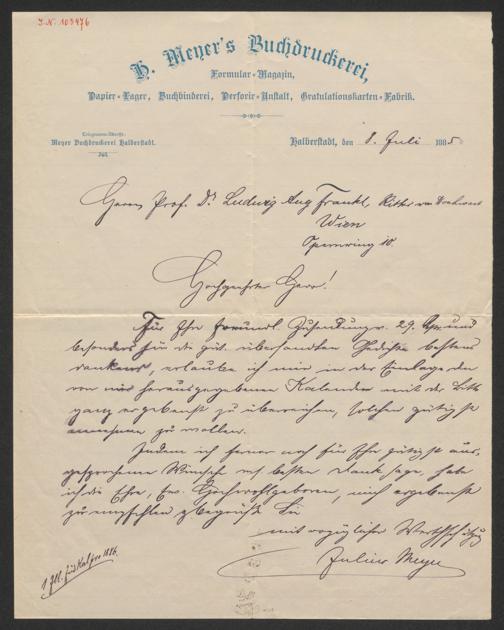 J.N. 103476
H. Meyer's Buchdruckerei,
Formular-Magazin,
Papier-Lager, Buchbinderei, Perforir-Anstalt, Gratulationskarten-Fabrik.
Telegramm-Adresse:
Meyer Buchdruckerei Halberstadt.
Halberstadt, den 8. Juli 1885
Herrn Prof. Dr Ludwig Aug Frankl, Ritter von Hochwart
Wien
Opernring 10.
Hochgeehrter Herr!
Für Ihre freundl. Zusendung v. 29. und
besonders für die güt. übersandten Gedichte bestens
dankend, erlaube ich mir in der Einlage den
von mir herausgegebenen Kalender mit der Bitte
ganz ergebenst zu überreichen, solchen gütigst
annehmen zu wollen.
Indem ich ferner noch für Ihre gütigst aus-
gesprochenen Wünsche besten Dank sage, habe
ich die Ehre, Ew. Hochwohlgeboren, mich ergebenst
zu empfehlen & begrüße Sie
mit vorzüglicher Werthschätzung
Julius Meyer
1886.